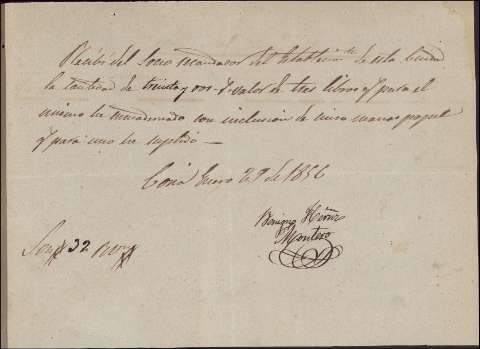 Recibí del Sor Recaudador del de esta Ciudad
la cantidad de treinta y dos r.s valor de tres libros q.e para el
mismo he encuadernado con inclusion de cinco manos papel
q.e para uno he suplido —
Coria Enero 29 de 1856
Benigno Hern.n
Montero
Son 32 Rs